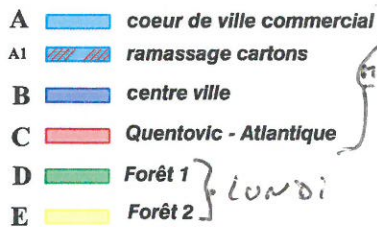 A coeur de ville commercial
A1 ramassage cartons
B centre ville
C Quentovic - Atlantique
D Forêt 1
E Forêt 2
LUNDI